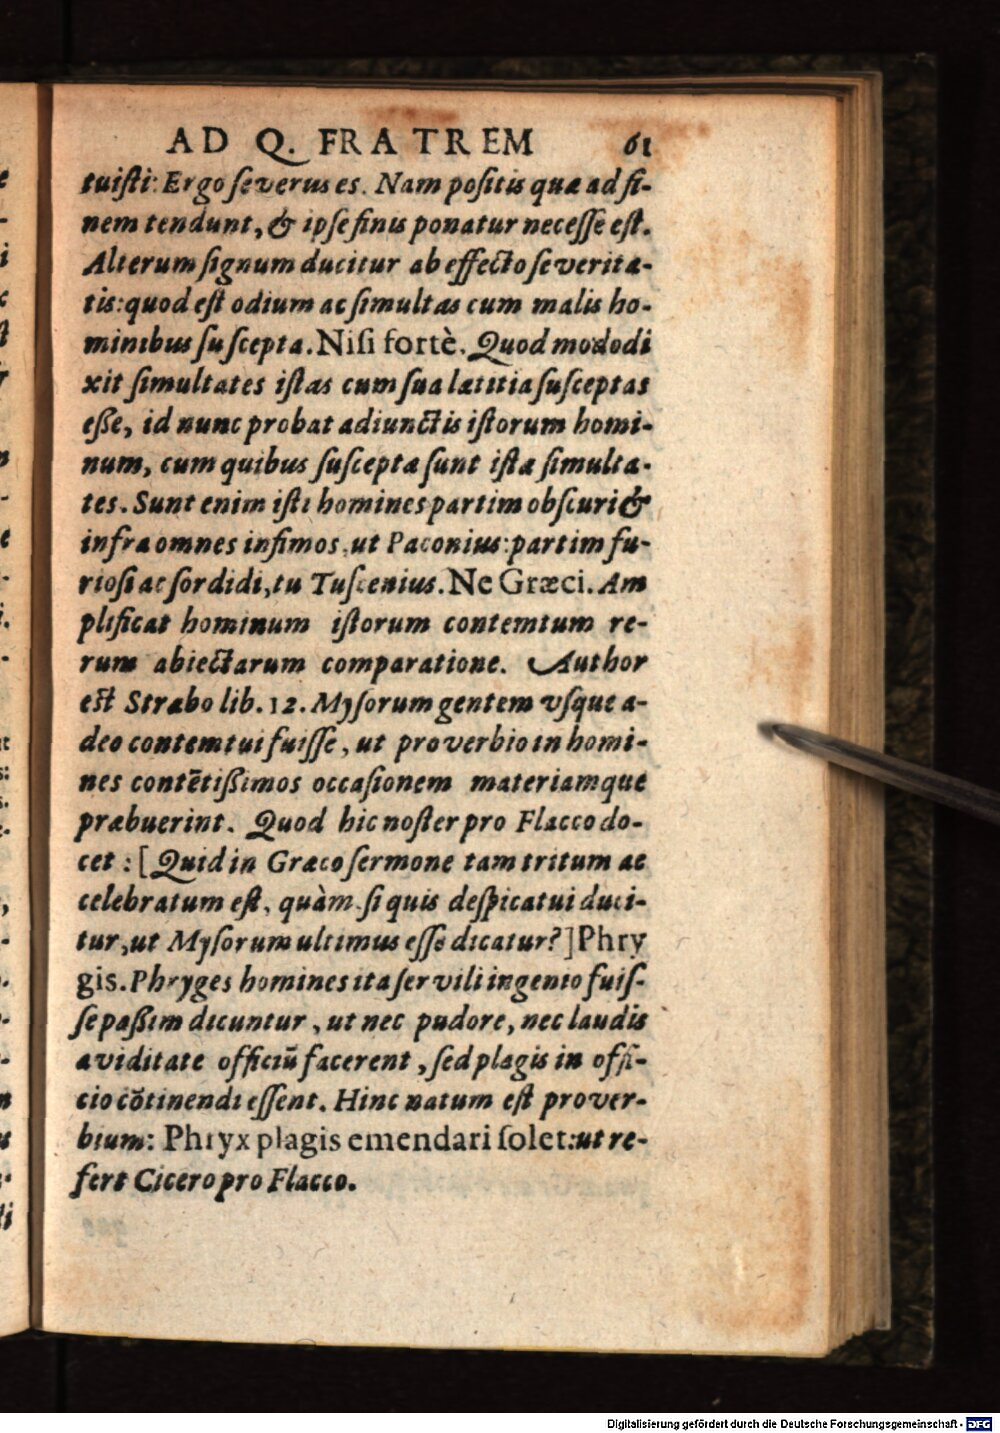 AD Q. FRATREM 61
tuiſti: Ergo ſeverus es. Nam poſitis quæ ad fi-
nem tendunt, & ipſe finis ponatur neceſſe eſt.
Alterum ſignum ducitur ab effecto ſeverita-
tis: quod eſt odium ac ſimultas cum malis ho-
minibus ſuſcepta. Niſi fortè. Quod modo di
xit ſimultates iſtas cum ſua lætitia ſuſceptas
eſſe, id nunc probat adiunctis iſtorum homi-
num, cum quibus ſuſceptæ ſunt iſtæ ſimulta-
tes. Sunt enim iſti homines partim obſcuri &
infra omnes infimos, ut Paconius: partim fu-
rioſi ac ſordidi, tu Tuſcenius. Ne Græci. Am
plificat hominum iſtorum contemtum re-
rum abiectarum comparatione. Author
eſt Strabo lib. 12. Myſorum gentem vſque a-
deo contemtui fuiſſe, ut proverbio in homi-
nes contẽtiſſimos occaſionem materiamque
præbuerint. Quod hic noſter pro Flacco do-
cet: [Quid in Græco ſermone tam tritum ac
celebratum eſt, quàm ſi quis deſpicatui duci-
tur, ut Myſorum ultimus eſſe dicatur?] Phry
gis. Phryges homines ita ſervili ingenio fuiſ-
ſe paſſim dicuntur, ut nec pudore, nec laudis
aviditate officiũ facerent, ſed plagis in offi-
cio cõtinendi eſſent. Hinc natum eſt prover-
bium: Phryx plagis emendari ſolet: ut re-
fert Cicero pro Flacco.
Digitalisierung gefördert durch die Deutsche Forschungsgemeinschaft - DFG